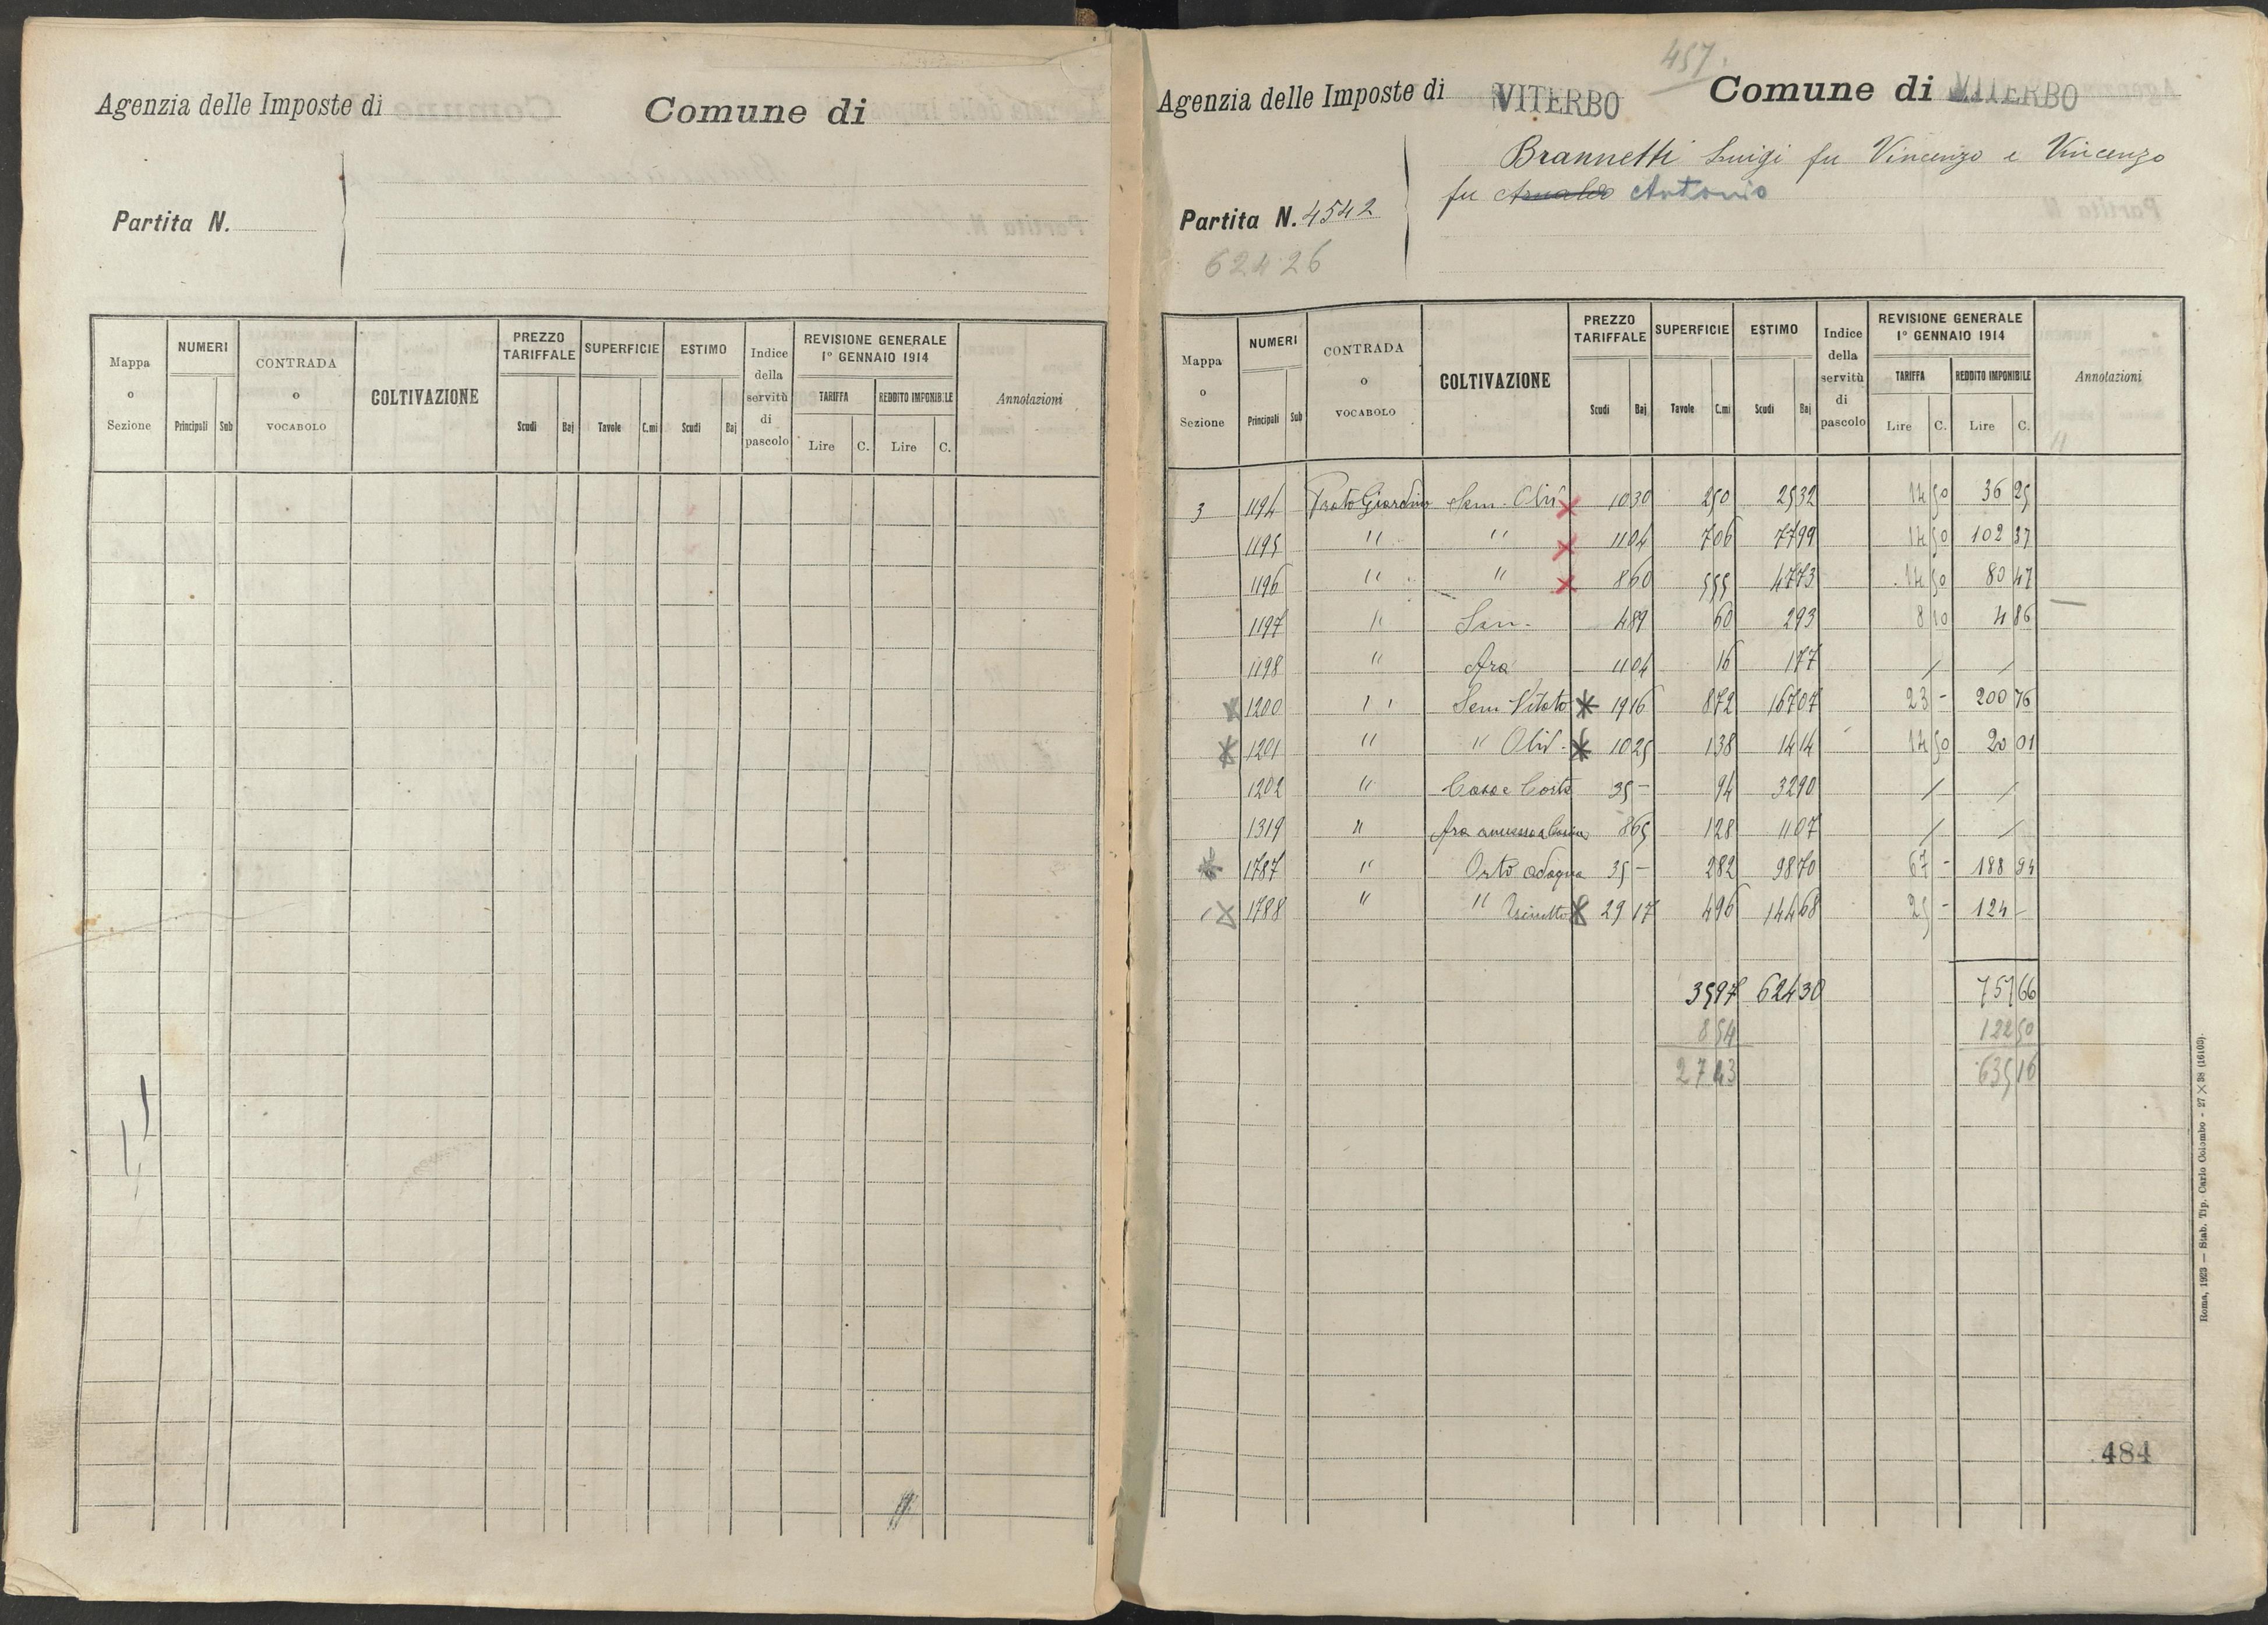 Agenzia delle Imposte di
Comune di
Partita N.
Mappa o Sezione
NUMERI
Principali Sub
CONTRADA o VOCABOLO
COLTIVAZIONE
PREZZO TARIFFALE
Scudi Baj
SUPERFICIE
Tavole C.mi
ESTIMO
Scudi Baj
Indice della servitù di pascolo
REVISIONE GENERALE 1° GENNAIO 1914
TARIFFA
Lire C.
REDDITO IMPONIBILE
Lire C.
Annotazioni
457.
Agenzia delle Imposte di VITERBO
Comune di VITERBO
Brannetti Luigi fu Vincenzo e Vincenzo
fu Arnaldo Antonio
Partita N. 4542
62426
Mappa o Sezione
NUMERI
Principali Sub
CONTRADA o VOCABOLO
COLTIVAZIONE
PREZZO TARIFFALE
Scudi Baj
SUPERFICIE
Tavole C.mi
ESTIMO
Scudi Baj
Indice della servitù di pascolo
REVISIONE GENERALE 1° GENNAIO 1914
TARIFFA
Lire C.
REDDITO IMPONIBILE
Lire C.
Annotazioni
3 1194 Prato Giardino Sem. Oliv 10 30 2 50 25 32 14 50 36 25
1195 " " 11 04 7 06 77 99 14 50 102 37
1196 " " 8 60 5 55 47 73 14 50 80 47
1197 " Sem. 4 89 60 2 93 8 10 4 86
1198 " Ara 11 04 16 1 77 / /
1200 " Sem Vitato 19 16 8 72 167 07 23 - 200 76
1201 " " Oliv. 10 25 1 38 14 14 14 50 20 01
1202 " Casa e Corte 35 - 94 32 90 / /
1319 " Ara annessa a 8 65 1 28 11 07 / /
1787 " Orto adaqua 35 - 2 82 98 70 67 - 188 94
1788 " " 29 17 4 96 144 68 25 - 124 -
35 97 624 30 757 66
8 54 122 50
27 43 635 16
484
Roma, 1923 — Stab. Tip. Carlo Colombo - 27 × 38 (16103).